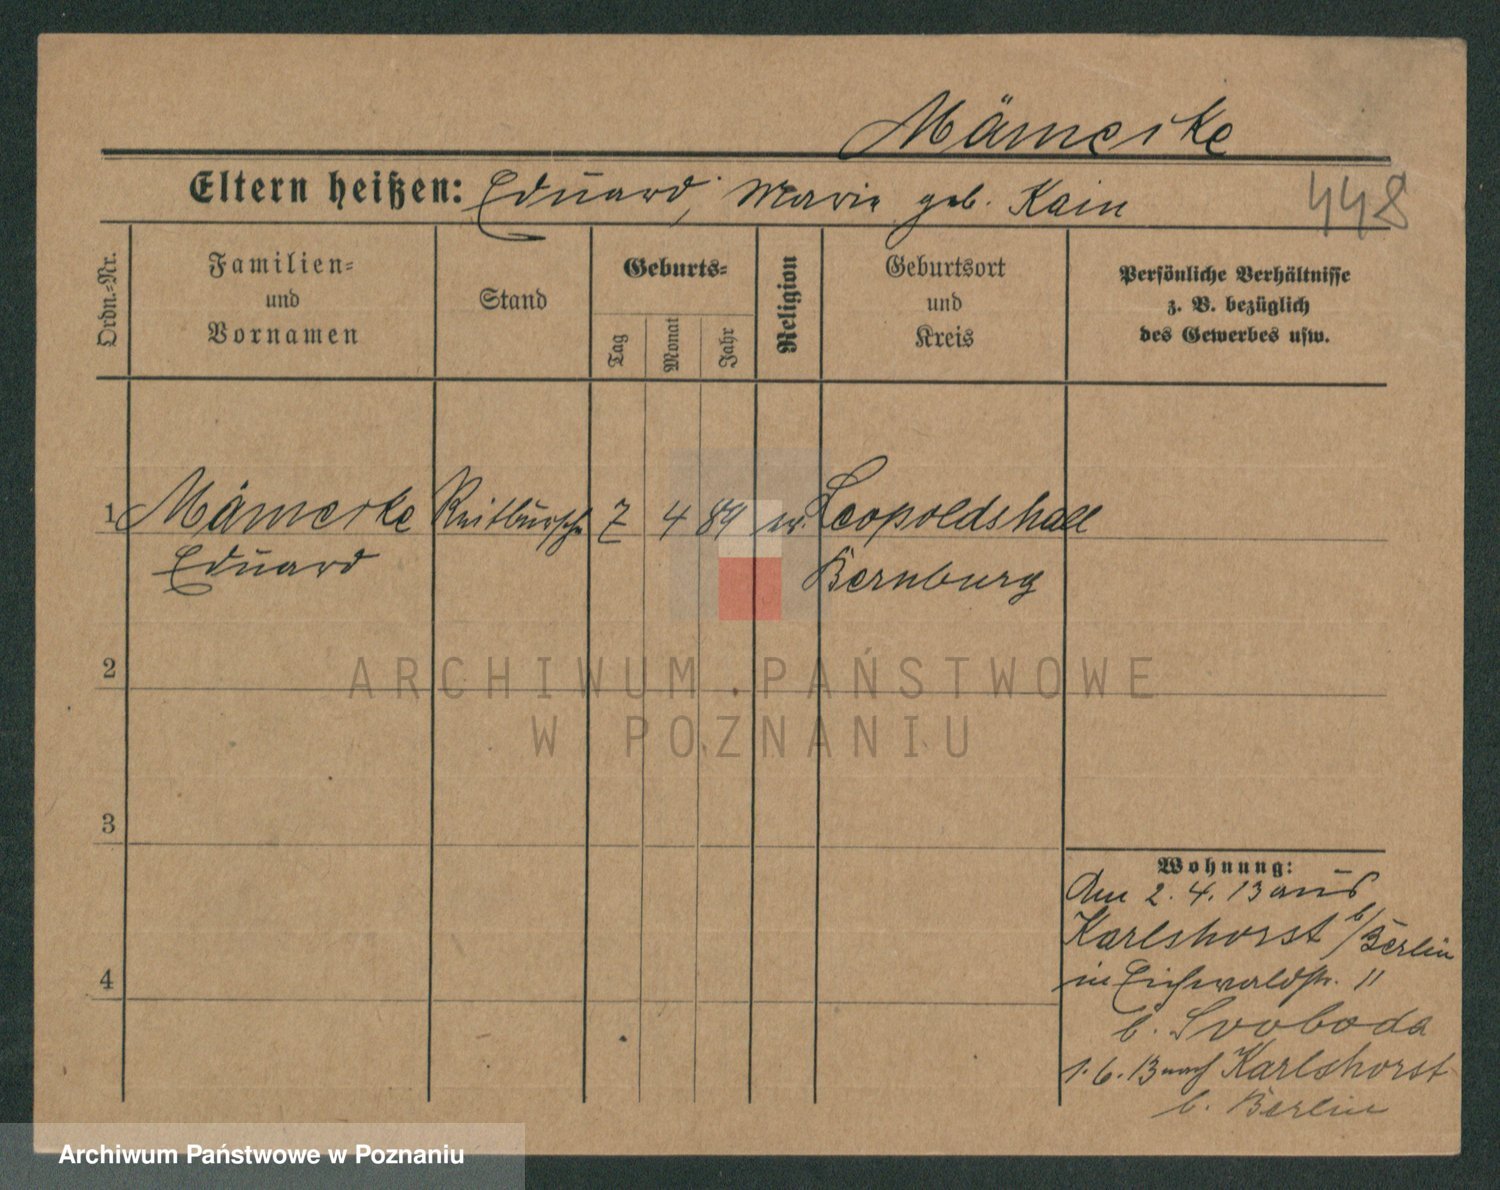 Mämecke
Eltern heißen: Eduard, Marie geb. Kain
448
Ordn.-Nr.
Familien-
und
Vornamen
Stand
Geburts-
Tag
Monat
Jahr
Religion
Geburtsort
und
Kreis
Persönliche Verhältnisse
z. B. bezüglich
des Gewerbes usw.
1 Mämecke Reitbursche 7 4 89 ev. Leopoldshall
Eduard Bernburg
2
ARCHIWUM PAŃSTWOWE
W POZNANIU
3
Wohnung:
Am 2. 4. 13 aus
Karlshorst b/Berlin
in Eichwaldstr. 11
4
b. Svoboda
1. 6. 13 nach Karlshorst
b. Berlin
Archiwum Państwowe w Poznaniu